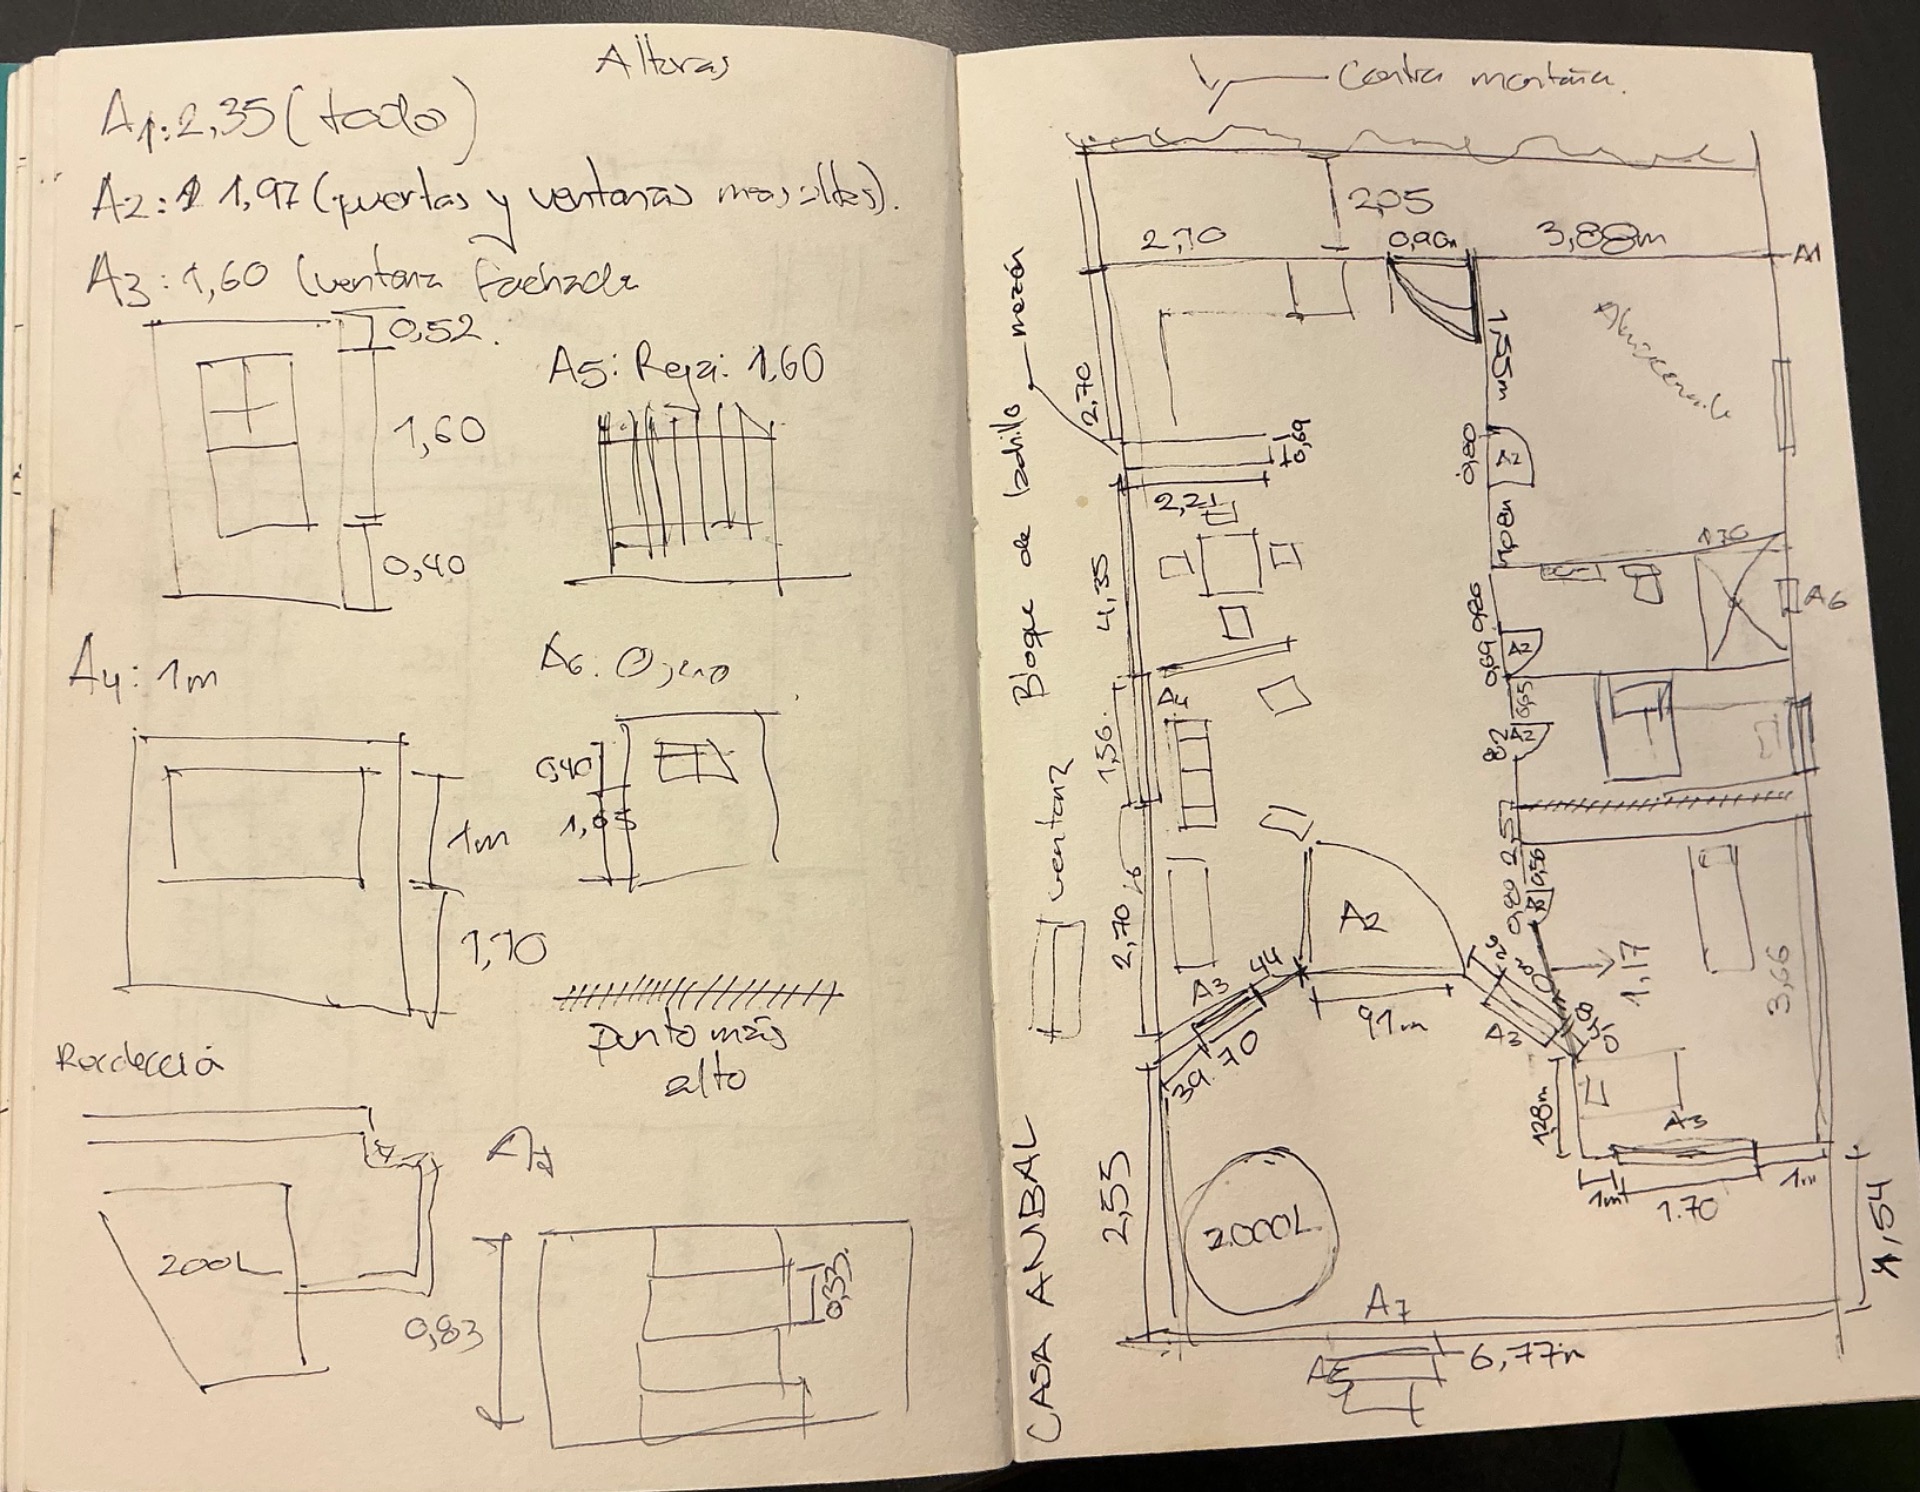 Alturas
A1: 2,35 (todo)
A2: 1,97 (puertas y ventanas mas altas).
A3: 1,60 (ventana fachada
0,52
1,60
0,40
A5: Reja: 1,60
A4: 1m
1m
1,70
A6: 0,40
0,40
1,05
punto más
alto
200L
A7
0,83
0,33
Contra montaña.
2,05
2,70
0,90m
3,88m
A1
mezón
Bloque de ladrillo
ventana
CASA ANIBAL
2,70
0,69
2,21
4,35
A4
1,56
2,70
1,55m
0,80
A2
1,08m
1,70
A6
0,69
A2
0,65
82
A2
2,57
0,56
0,80
A2
A3
44
70
39
91m
A3
1,17
3,66
1,28m
A3
1m
1.70
1m
1,54
2,55
2.000L
A7
A5
6,77m